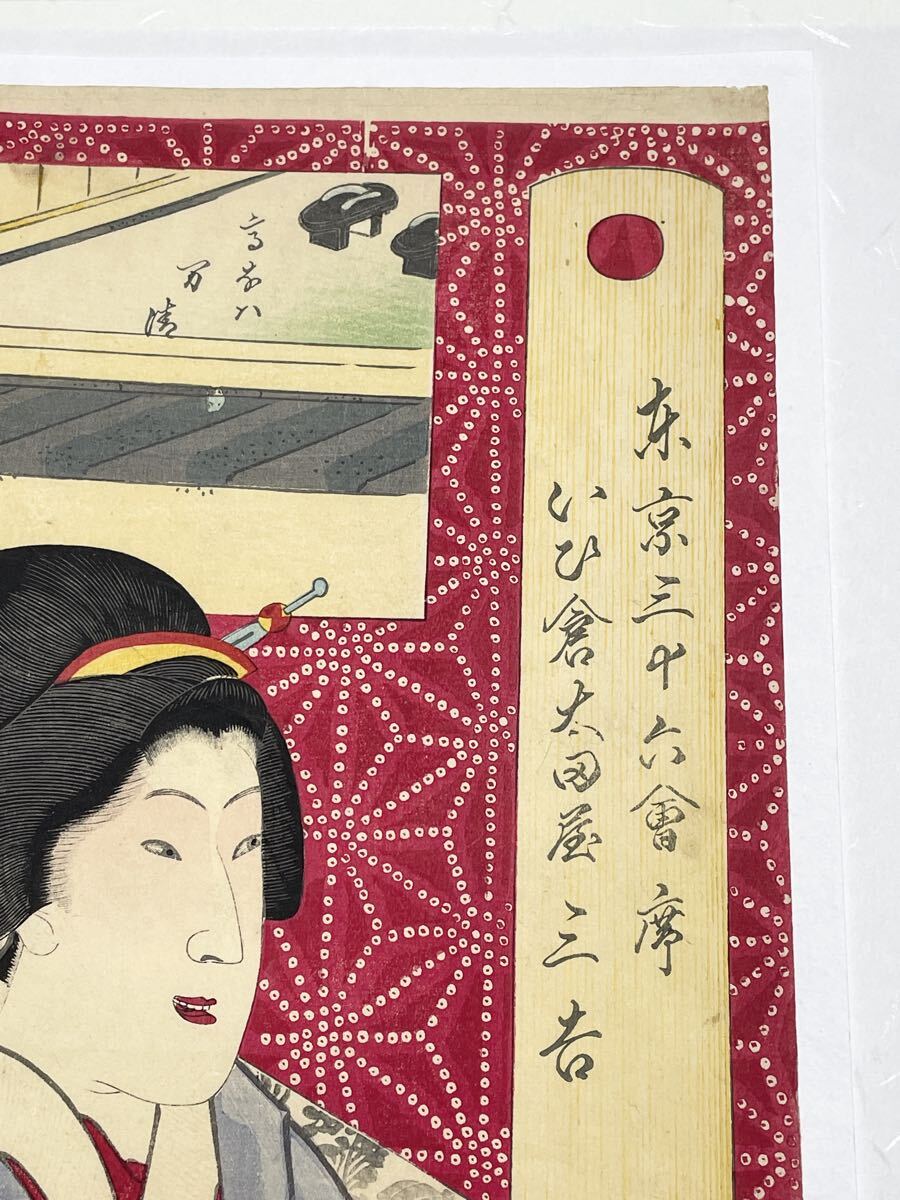 东京三十六會席
いひ倉太田屋三吉
高なハ
万清